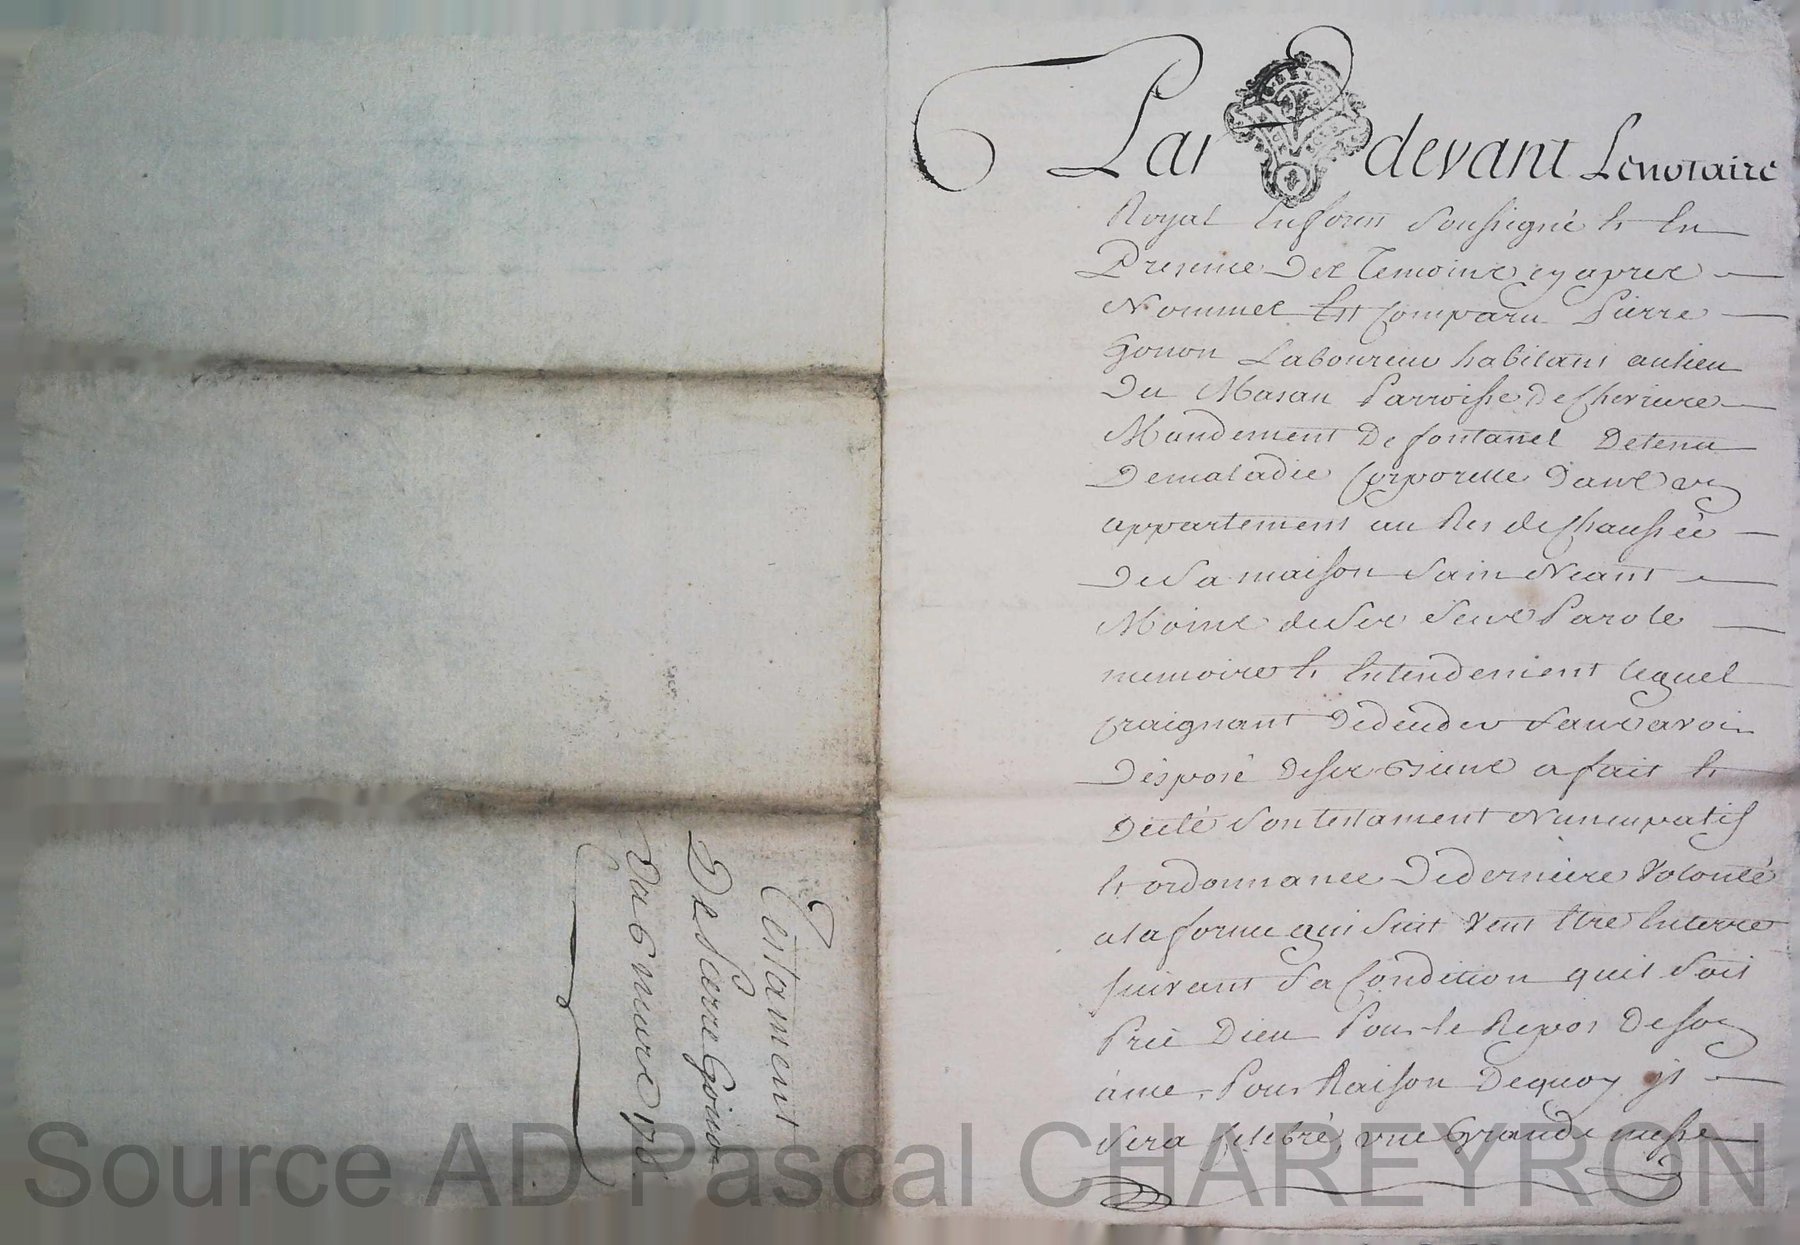 Par devant Le notaire
Royal En forés Soussigné Et En
Presence Des Temoins cy apres
Nommes Est Comparu Pierre
Gonon Laboureur habitant au lieu
Du Mazau Parroisse De Chevriere
Mandement De fontanes Detenu
De maladie Corporelle Dans un
appartement au Res de Chaussée
De Sa maison Sain Neant
Moins de Ses Sens Parole
memoire Et Entendement lequel
craignant De deceder Sans avoir
Disposé De ses Biens a fait Et
Dicté Son testament Nuncupatif
Et ordonnance De derniere Volonté
a la forme qui Suit Veut Etre Enterre
suivant Sa Condition quil Soit
Prié Dieu Pour le Repos De son
ame, Pour Raison De quoy il
Sera Celebré, une Grande messe
Testament
De Pierre Gonon
Du 6 mars 178
Source AD Pascal CHAREYRON